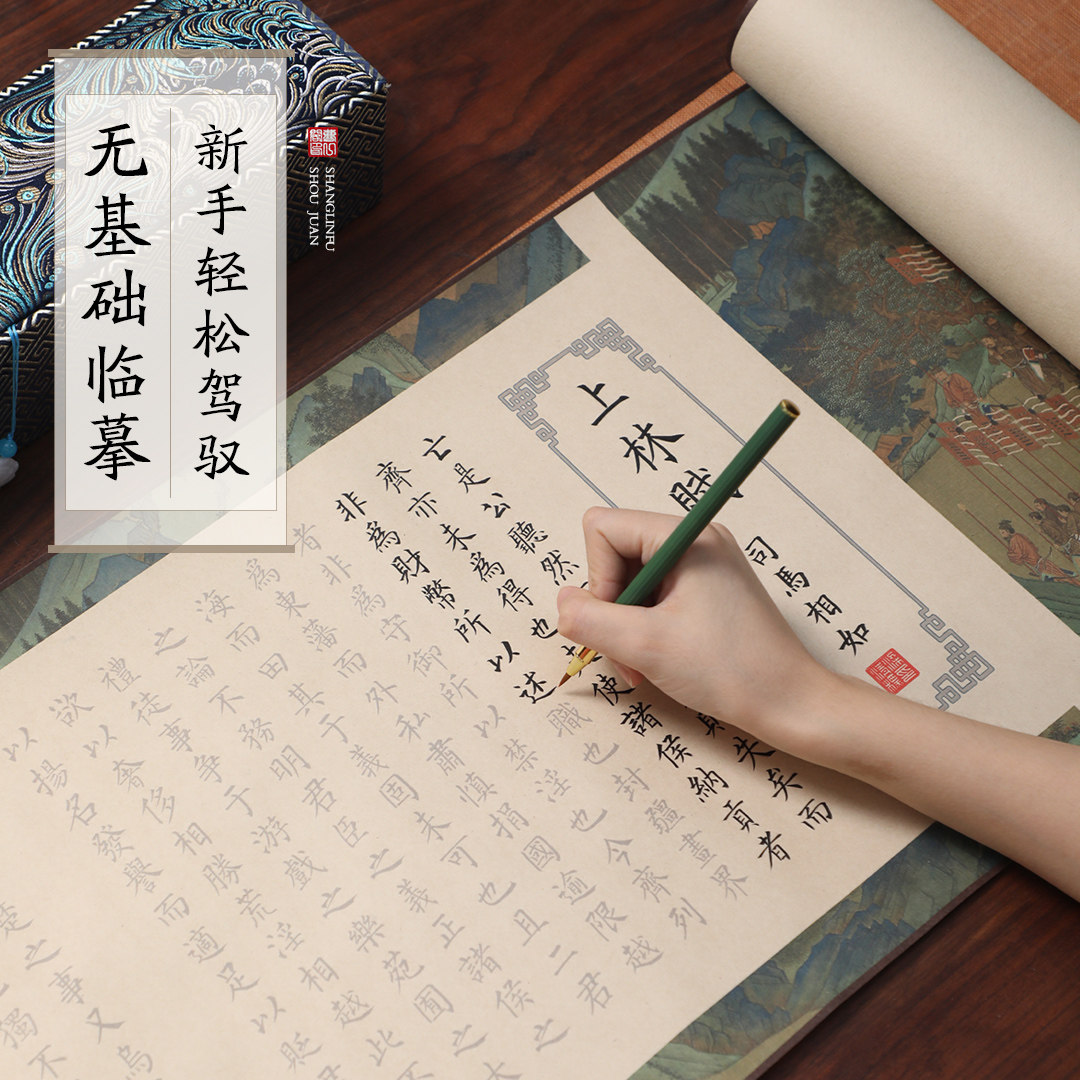 新手轻松驾驭
无基础临摹
SHANGLINFU
SHOU JUAN
上林賦
司馬相如
亡是公聽然 失矣而
齊亦未為得也 使諸侯納貢者
非為財幣所以述職也封疆畫界
者非為守御所以禁淫也今齊列
為東藩而外私肅慎捐國逾限越
海而田其于義固未可也且二君
之論不務明君臣之義正諸侯之
禮徒事争于游戲之樂苑囿之
欲以奢侈相勝荒淫相越此
以揚名發譽而適足以貶
楚之事又烏
獨不